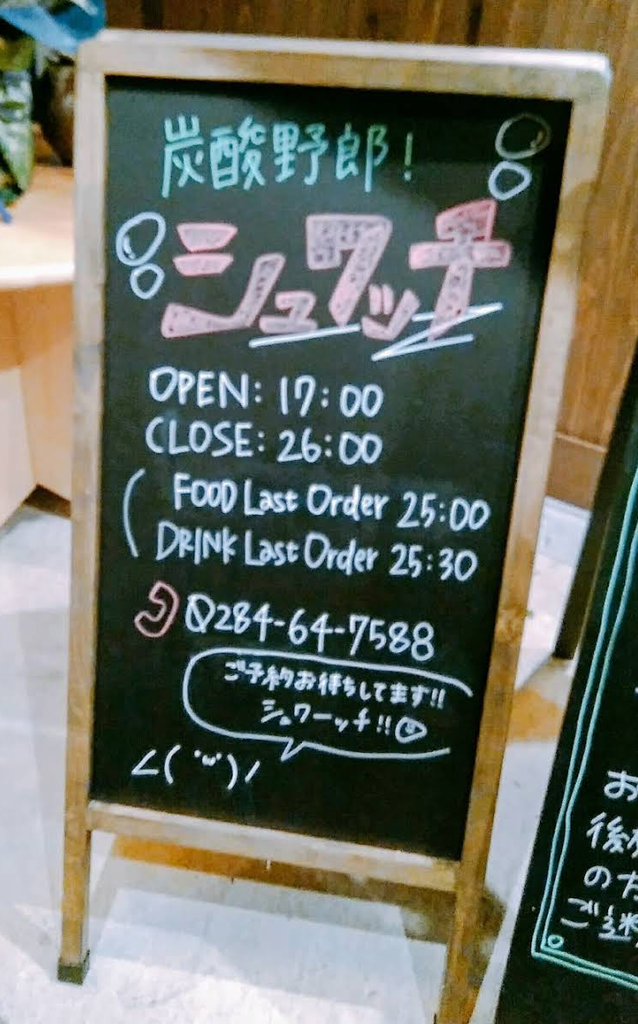 炭酸野郎!
シュワッチ
OPEN: 17:00
CLOSE: 26:00
FOOD Last Order 25:00
DRINK Last Order 25:30
0284-64-7588
ご予約お待ちしてます!!
シュワーッチ!!
<( ˙ω˙)/
お
後
のた
ご迷